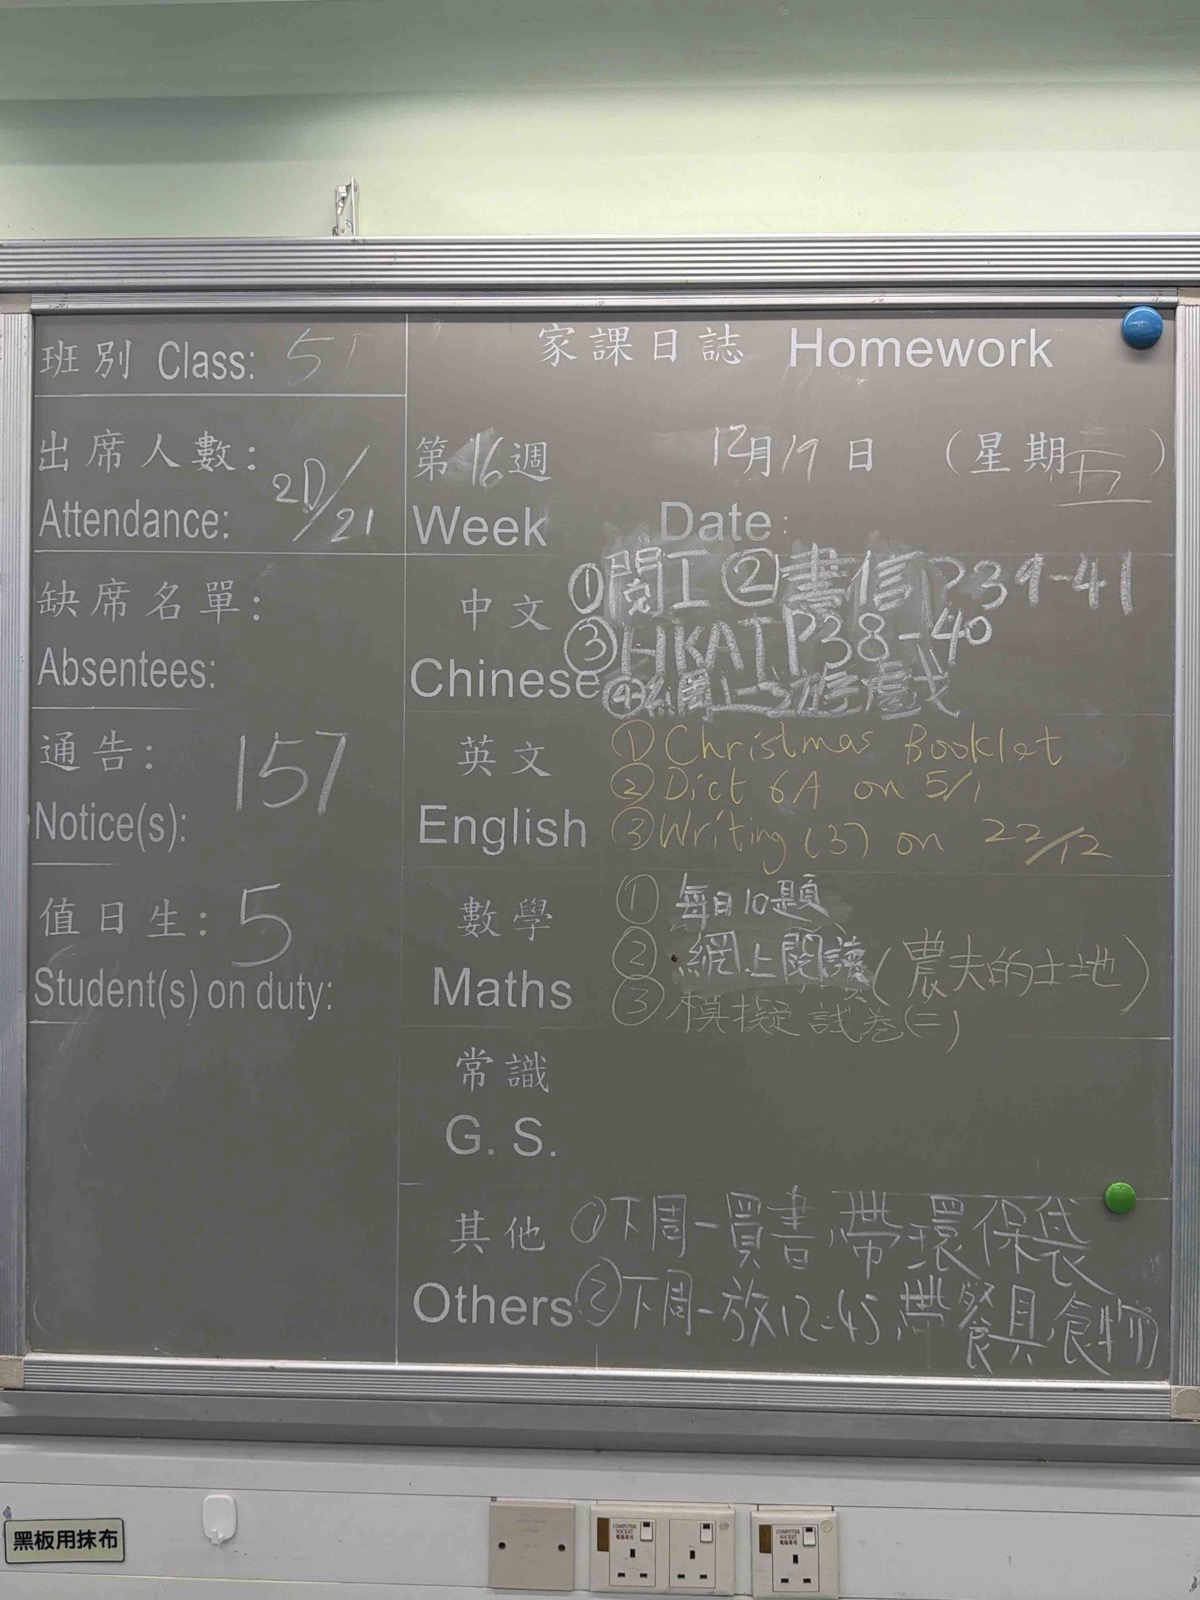 班別 Class: 5
家課日誌 Homework
出席人數:
Attendance: 20/21
第16週 12月19日 (星期五)
Week Date:
缺席名單:
Absentees:
中文 ①閱工 ②書信 P39-41
Chinese ③HKAT P38-40
④網上遊戲
通告: 157
Notice(s):
英文 ① Christmas Booklet
② Dict 6A on 5/1
English ③ Writing (3) on 22/12
值日生: 5
Student(s) on duty:
數學 ① 每日10題
② 網上閱讀(農夫的土地)
Maths ③ 模擬試卷(二)
常識
G. S.
其他 ①下周一買書,帶環保袋
Others ②下周一放12:45,帶餐具食物
黑板用抹布
COMPUTER SOCKET
COMPUTER SOCKET